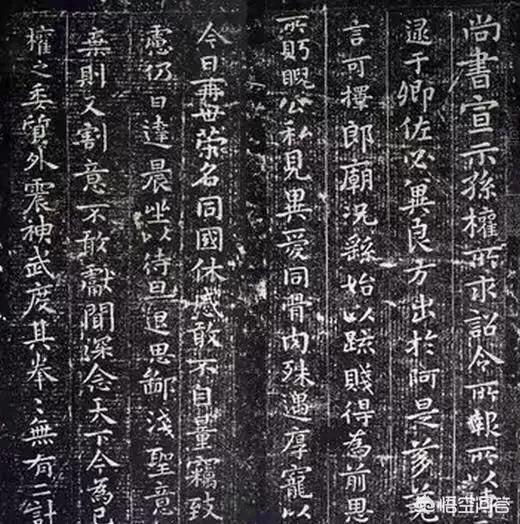 尚書宣示孫權所求詔令所報所以
逮于卿佐必冀良方出於阿是芻蕘
言可擇郎廟況繇始以疏賤得為前恩
所眄睨公私見異愛同骨肉殊遇厚寵以
今日再世榮名同國休慼敢不自量竊致
慮仍日達晨坐以待旦退思鄙淺聖意
棄則又割意不敢獻聞深念天下今為已
權之委質外震神武度其拳〻無有二計
悟空问答